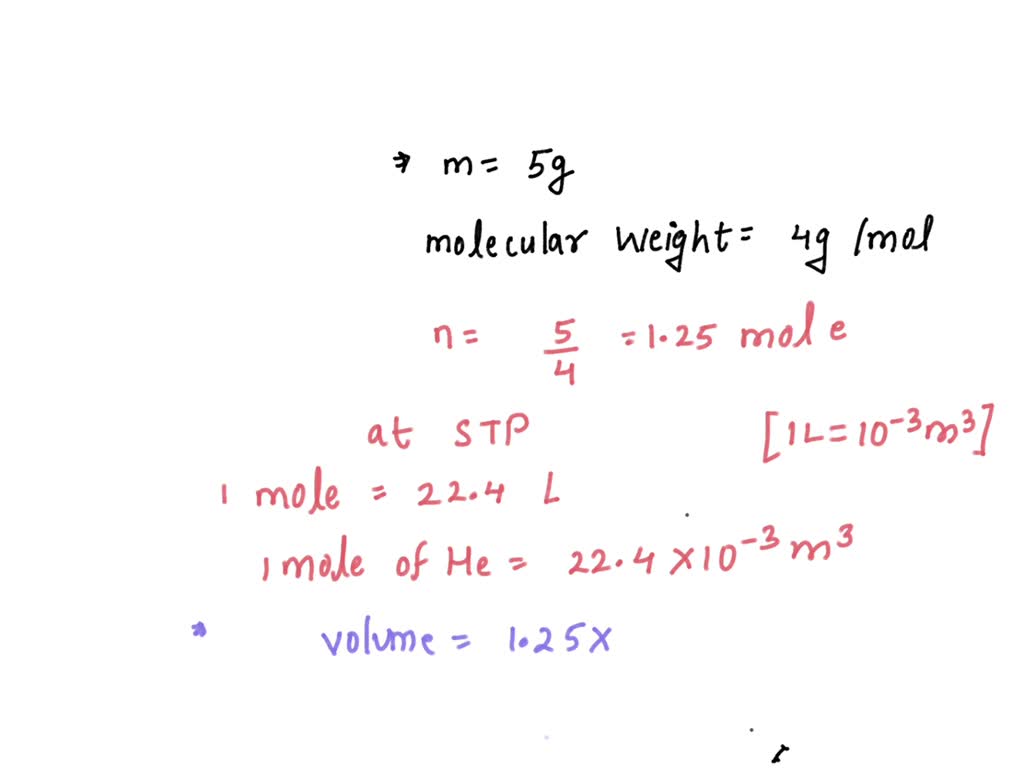 ⇒ m = 5g
molecular weight = 4g /mol
n = 5/4 = 1.25 mole
at STP [1L = 10⁻³m³]
1 mole = 22.4 L
1 mole of He = 22.4 × 10⁻³ m³
⇒ volume = 1.25 ×